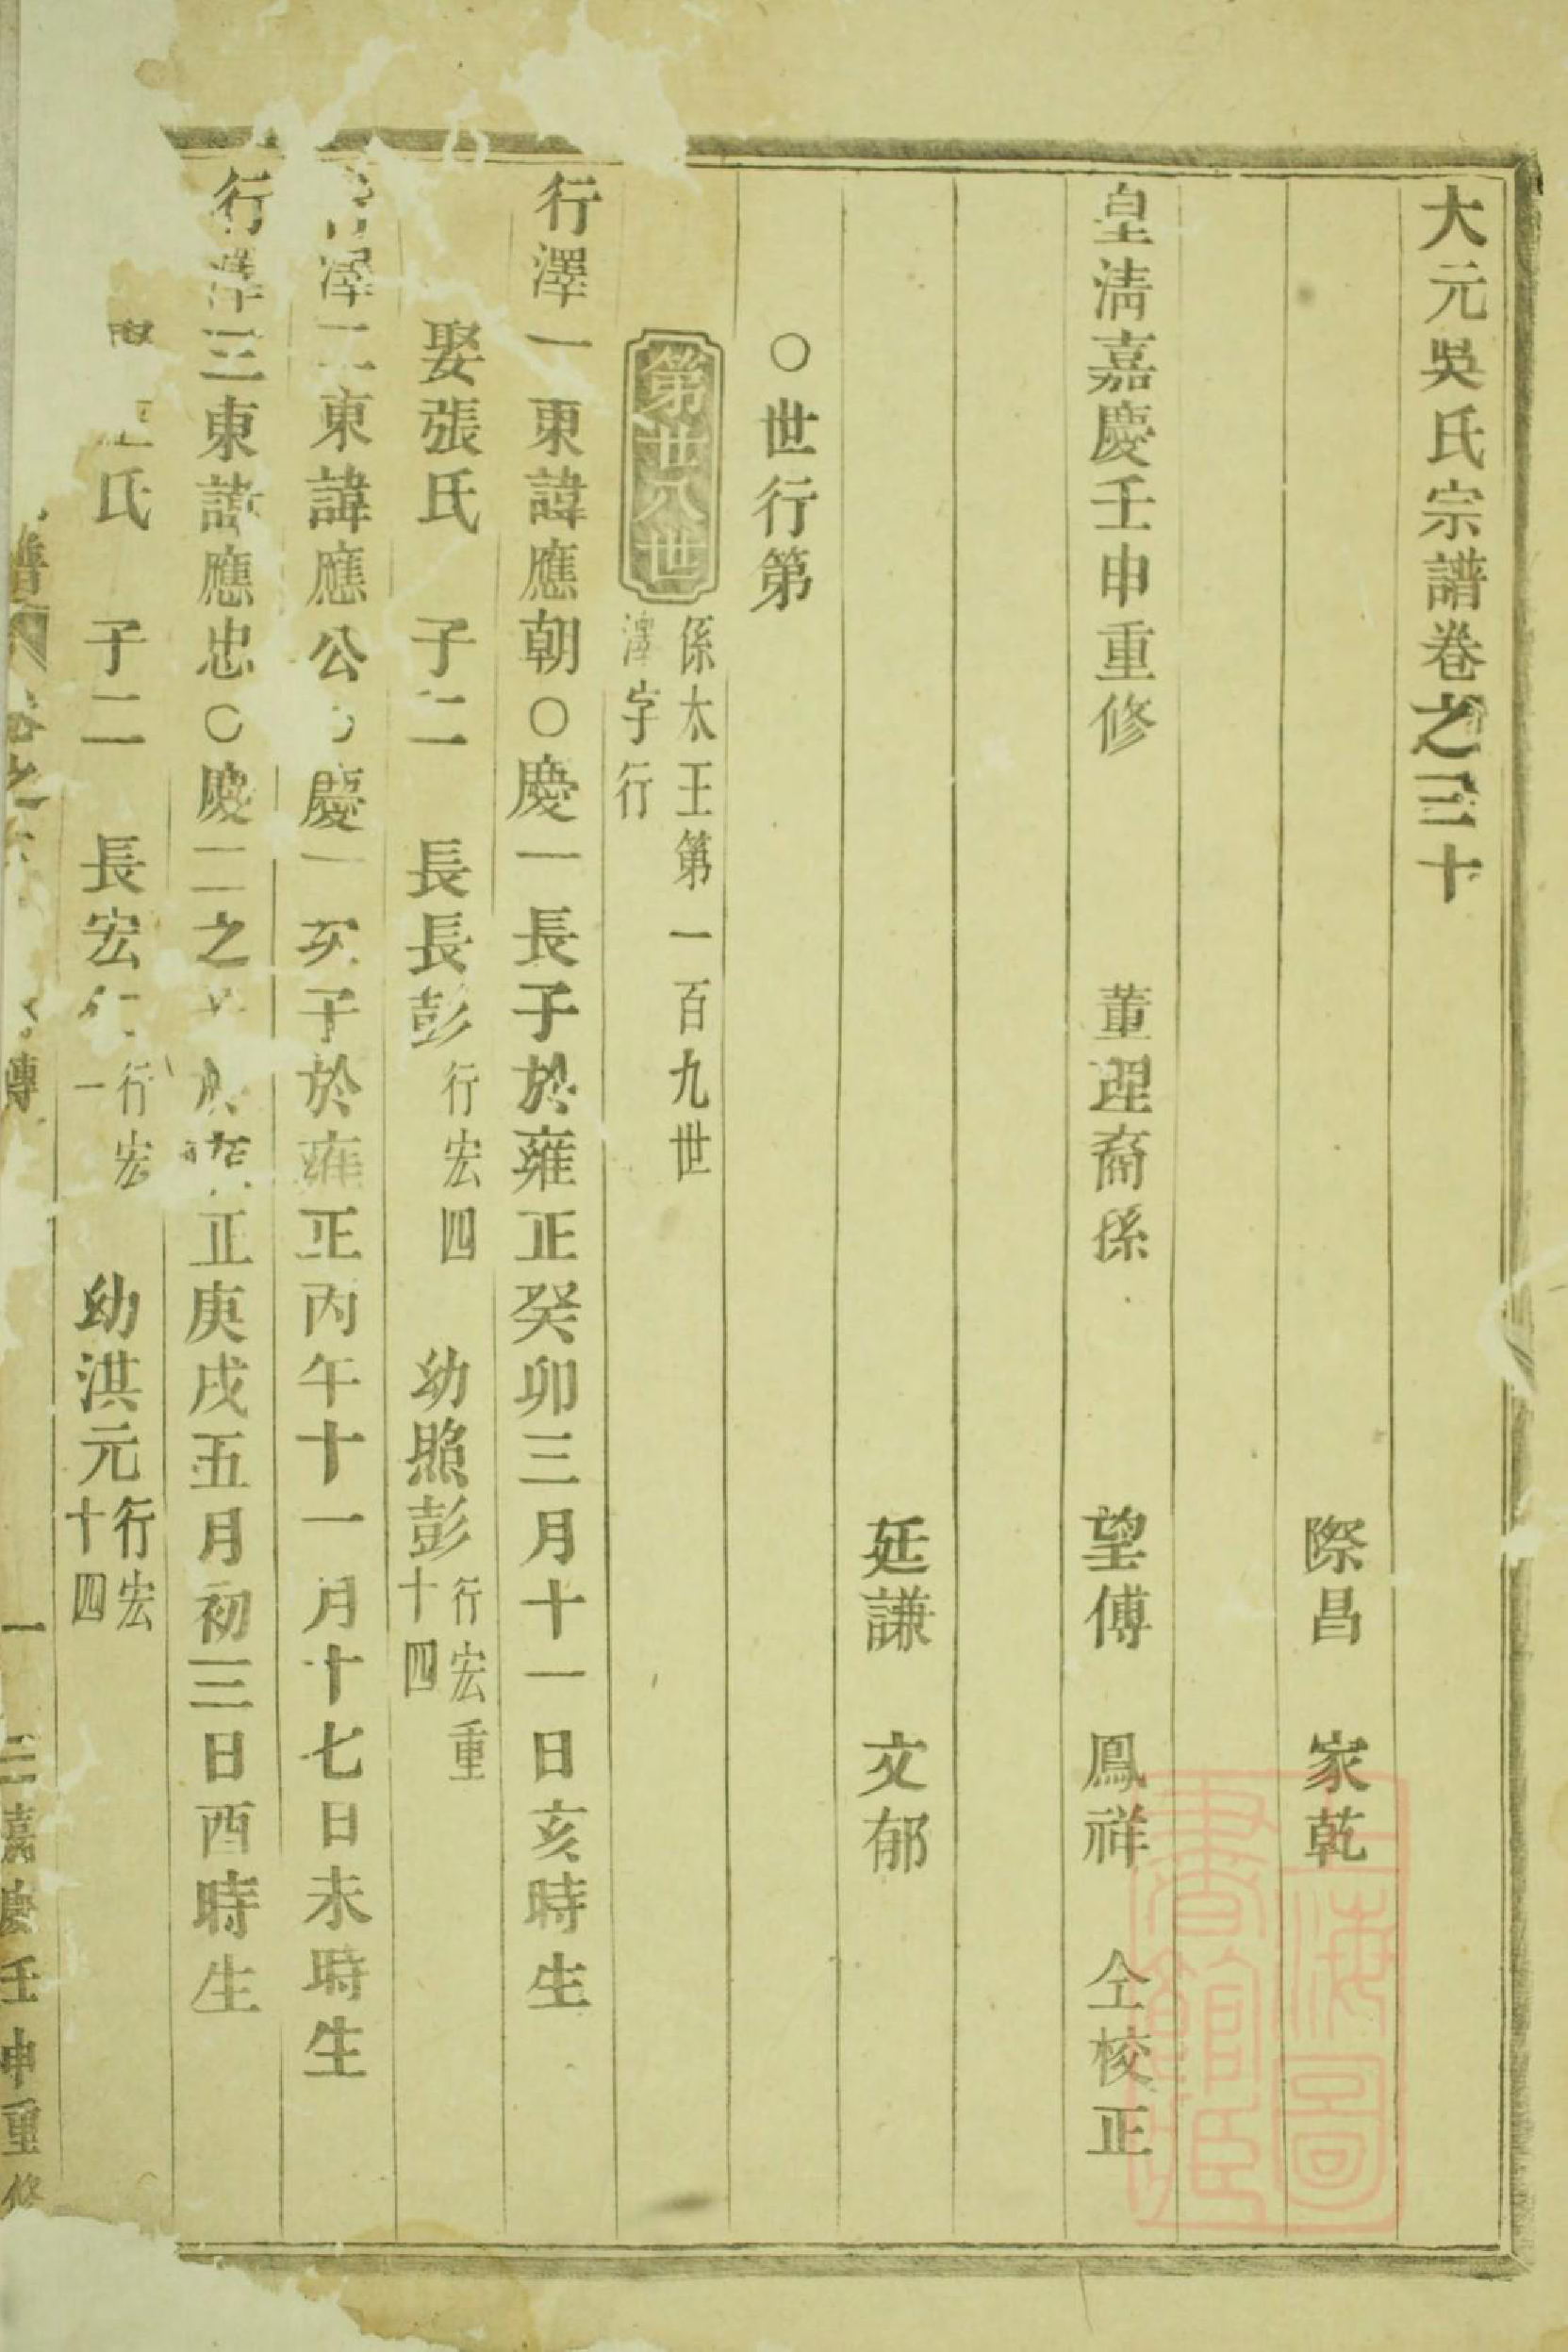 大元吳氏宗譜卷之三十
際昌 家乾
皇清嘉慶壬申重修 董理裔孫 望傅 鳳祥 仝校正
廷謙 文郁
○世行第
第廿八世 係太王第一百九世
澤字行
行澤一東諱應朝○慶一長子於雍正癸卯三月十一日亥時生
娶張氏 子二 長長彭行宏四 幼照彭行宏重十四
澤二東諱應公○慶一次子於雍正丙午十一月十七日未時生
行澤三東諱應忠○慶二之 正庚戌五月初三日酉時生
氏 子二 長宏仁行宏一 幼洪元行宏十四
譜 卷之 傳 一 嘉慶壬申重修
上海圖書館藏